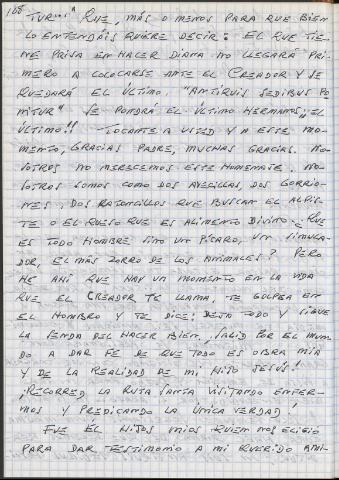 108
TUR..." QUE, MÁS O MENOS PARA QUE BIEN
LO ENTENDÁIS QUIERE DECIR: EL QUE TIE-
NE PRISA EN HACER DIANA NO LLEGARÁ PRI-
MERO A COLOCARSE ANTE EL CREADOR Y SE
QUEDARÁ EL ÚLTIMO. "ANTIQUIS SEDIBUS PO
NITUR" SE PONDRÁ EL ÚLTIMO HERMANOS, EL
ÚLTIMO!! TOCANTE A USTED Y A ESTE MO-
MENTO, GRACIAS PADRE, MUCHAS GRACIAS. NO-
SOTROS NO MERECEMOS ESTE HOMENAJE. NO-
SOTROS SOMOS COMO DOS AVECILLAS, DOS GORRIO-
NES. DOS RATONCILLOS QUE BUSCAN EL ALPIS-
TE O EL QUESO QUE ES ALIMENTO DIVINO. ¿QUE
ES TODO HOMBRE SINO UN PÍCARO, UN SIMULA-
DOR, EL MÁS ZORRO DE LOS ANIMALES? PERO
HE AHÍ QUE HAY UN MOMENTO EN LA VIDA
QUE EL CREADOR TE LLAMA, TE GOLPEA EN
EL HOMBRO Y TE DICE: DEJA TODO Y SIGUE
LA SENDA DEL HACER BIEN, SALID POR EL MUN-
DO A DAR FE DE QUE TODO ES OBRA MÍA
Y DE LA REALIDAD DE MI HIJO JESUS.
¡RECORRED LA RUTA SANTA VISITANDO ENFER-
MOS Y PREDICANDO LA ÚNICA VERDAD!
FUE ÉL HIJOS MÍOS QUIEN NOS ELIGIÓ
PARA DAR TESTIMONIO A MI QUERIDO ANI-